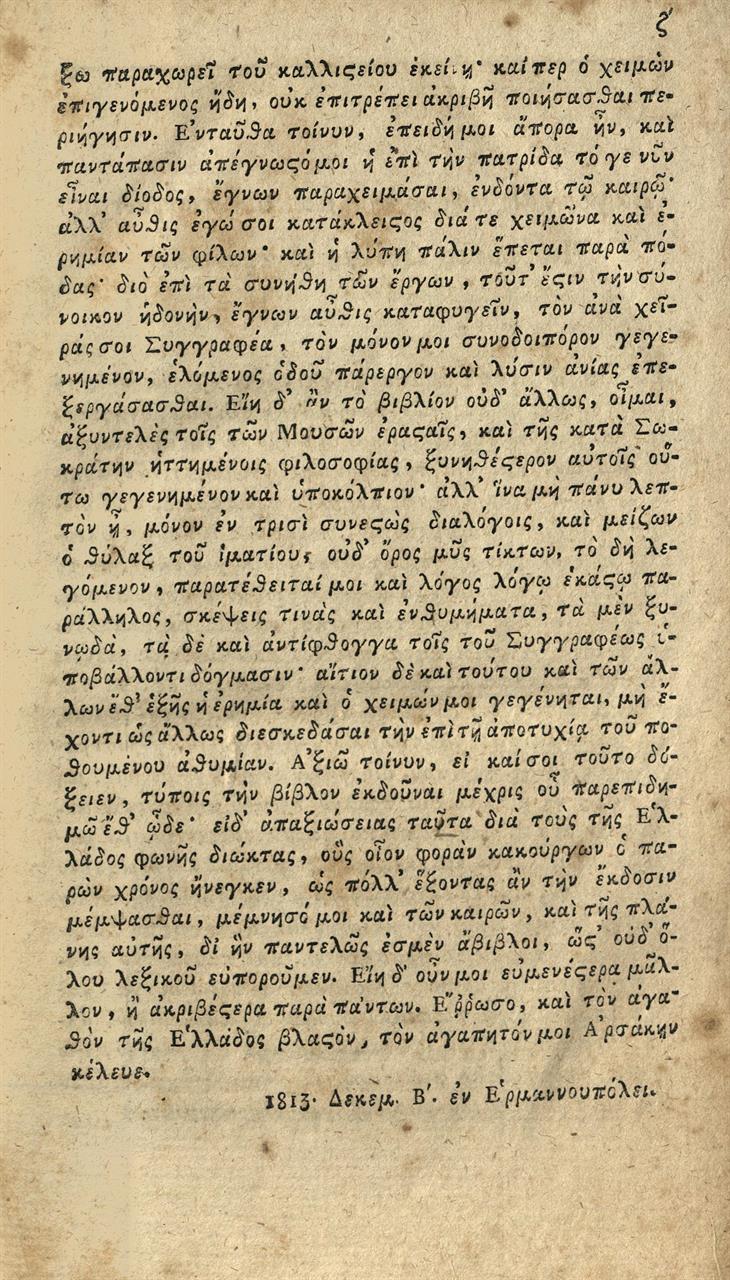 ζ´
ξω παραχωρεῖ τοῦ καλλιϛείου ἐκείνῃ· καίπερ ὁ χειμὼν
ἐπιγενόμενος ἤδη, οὐκ ἐπιτρέπει ἀκριβῆ ποιήσασθαι πε-
ριήγησιν. Ε᾿νταῦθα τοίνυν, ἐπειδή μοι ἄπορα ἦν, καὶ
παντάπασιν ἀπέγνωϛό μοι ἡ ἐπὶ τὴν πατρίδα τό γε νῦν
εἶναι δίοδος, ἔγνων παραχειμάσαι, ἐνδόντα τῷ καιρῷ·
ἀλλ᾿ αὖθις ἐγώ σοι κατάκλειϛος διά τε χειμῶνα καὶ ἐ-
ρημίαν τῶν φίλων· καὶ ἡ λύπη πάλιν ἕπεται παρὰ πό-
δας· διὸ ἐπὶ τὰ συνήθη τῶν ἔργων, τοῦτ᾿ ἔϛιν τὴν σύ-
νοικον ἡδονὴν, ἔγνων αὖθις καταφυγεῖν, τὸν ἀνὰ χεῖ-
ράς σοι Συγγραφέα, τὸν μόνον μοι συνοδοιπόρον γεγε-
νημένον, ἑλόμενος ὁδοῦ πάρεργον καὶ λύσιν ἀνίας ἐπε-
ξεργάσασθαι. Εἴη δ᾿ ἂν τὸ βιβλίον οὐδ᾿ ἄλλως, οἶμαι,
ἀξυντελὲς τοῖς τῶν Μουσῶν ἐραϛαῖς, καὶ τῆς κατὰ Σω-
κράτην ἡττημένοις φιλοσοφίας, ξυνηθέϛερον αὐτοῖς οὕ-
τω γεγενημένον καὶ ὑποκόλπιον· ἀλλ᾿ ἵνα μὴ πάνυ λεπ-
τὸν ᾖ, μόνον ἐν τρισὶ συνεϛὼς διαλόγοις, καὶ μείζων
ὁ θύλαξ τοῦ ἱματίου, οὐδ᾿ ὄρος μῦς τίκτων, τὸ δὴ λε-
γόμενον, παρατέθειταί μοι καὶ λόγος λόγῳ ἑκάϛῳ πα-
ράλληλος, σκέψεις τινὰς καὶ ἐνθυμήματα, τὰ μὲν ξυ-
νῳδὰ, τὰ δὲ καὶ ἀντίφθογγα τοῖς τοῦ Συγγραφέως ὑ-
ποβάλλοντι δόγμασιν· αἴτιον δὲ καὶ τούτου καὶ τῶν ἄλ-
λων ἔθ᾿ ἑξῆς ἡ ἐρημία καὶ ὁ χειμών μοι γεγένηται, μὴ ἔ-
χοντι ὡς ἄλλως διεσκεδάσαι τὴν ἐπὶ τῇ ἀποτυχίᾳ τοῦ πο-
θουμένου ἀθυμίαν. Α᾿ξιῶ τοίνυν, εἰ καί σοι τοῦτο δό-
ξειεν, τύποις τὴν βίβλον ἐκδοῦναι μέχρις οὗ παρεπιδη-
μῶ ἔθ᾿ ὧδε· εἰ δ᾿ ἀπαξιώσειας ταῦτα διὰ τοὺς τῆς Ε῾λ-
λάδος φωνῆς διώκτας, οὓς οἷον φορὰν κακούργων ὁ πα-
ρὼν χρόνος ἤνεγκεν, ὡς πόλλ᾿ ἕξοντας ἂν τὴν ἔκδοσιν
μέμψασθαι, μέμνησό μοι καὶ τῶν καιρῶν, καὶ τῆς πλά-
νης αὐτῆς, δι᾿ ἣν παντελῶς ἐσμὲν ἄβιβλοι, ὥϛ᾿ οὐδ᾿ ὅ-
λου λεξικοῦ εὐποροῦμεν. Εἴη δ᾿ οὖν μοι εὐμενέϛερα μᾶλ-
λον, ἢ ἀκριβέϛερα παρὰ πάντων. Ε῎ῤῥωσο, καὶ τὸν ἀγα-
θὸν τῆς Ε῾λλάδος βλαϛὸν, τὸν ἀγαπητόν μοι Α᾿ρσάκην
κέλευε.
1813. Δεκεμ. Β´. ἐν Ε῾ρμαννουπόλει.